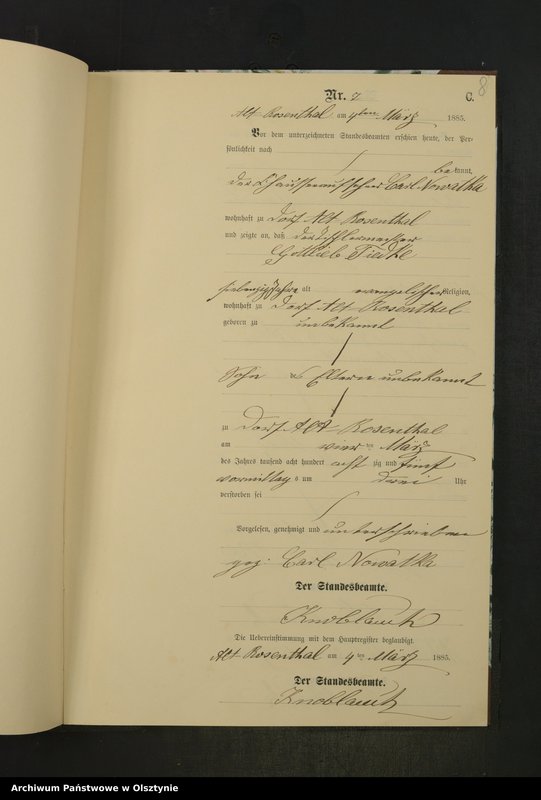 8
Nr. 7 C.
Alt Rosenthal am 4ten März 1885.
Vor dem unterzeichneten Standesbeamten erschien heute, der Per-
sönlichkeit nach
bekannt,
der Chausseeaufseher Carl Nowatka
wohnhaft zu Dorf Alt Rosenthal
und zeigte an, daß der
Gottlieb Tiedke
siebenzig Jahre alt evangelischer Religion,
wohnhaft zu Dorf Alt Rosenthal
geboren zu unbekannt
Sohn Eltern unbekannt
zu Dorf Alt Rosenthal
am vier ten März
des Jahres tausend acht hundert acht zig und fünf
vormittag s um drei Uhr
verstorben sei
Vorgelesen, genehmigt und unterschrieben
gez. Carl Nowatka
Der Standesbeamte.
Knoblauch
Die Uebereinstimmung mit dem Hauptregister beglaubigt.
Alt Rosenthal am 4 ten März 1885.
Der Standesbeamte.
Knoblauch
Archiwum Państwowe w Olsztynie